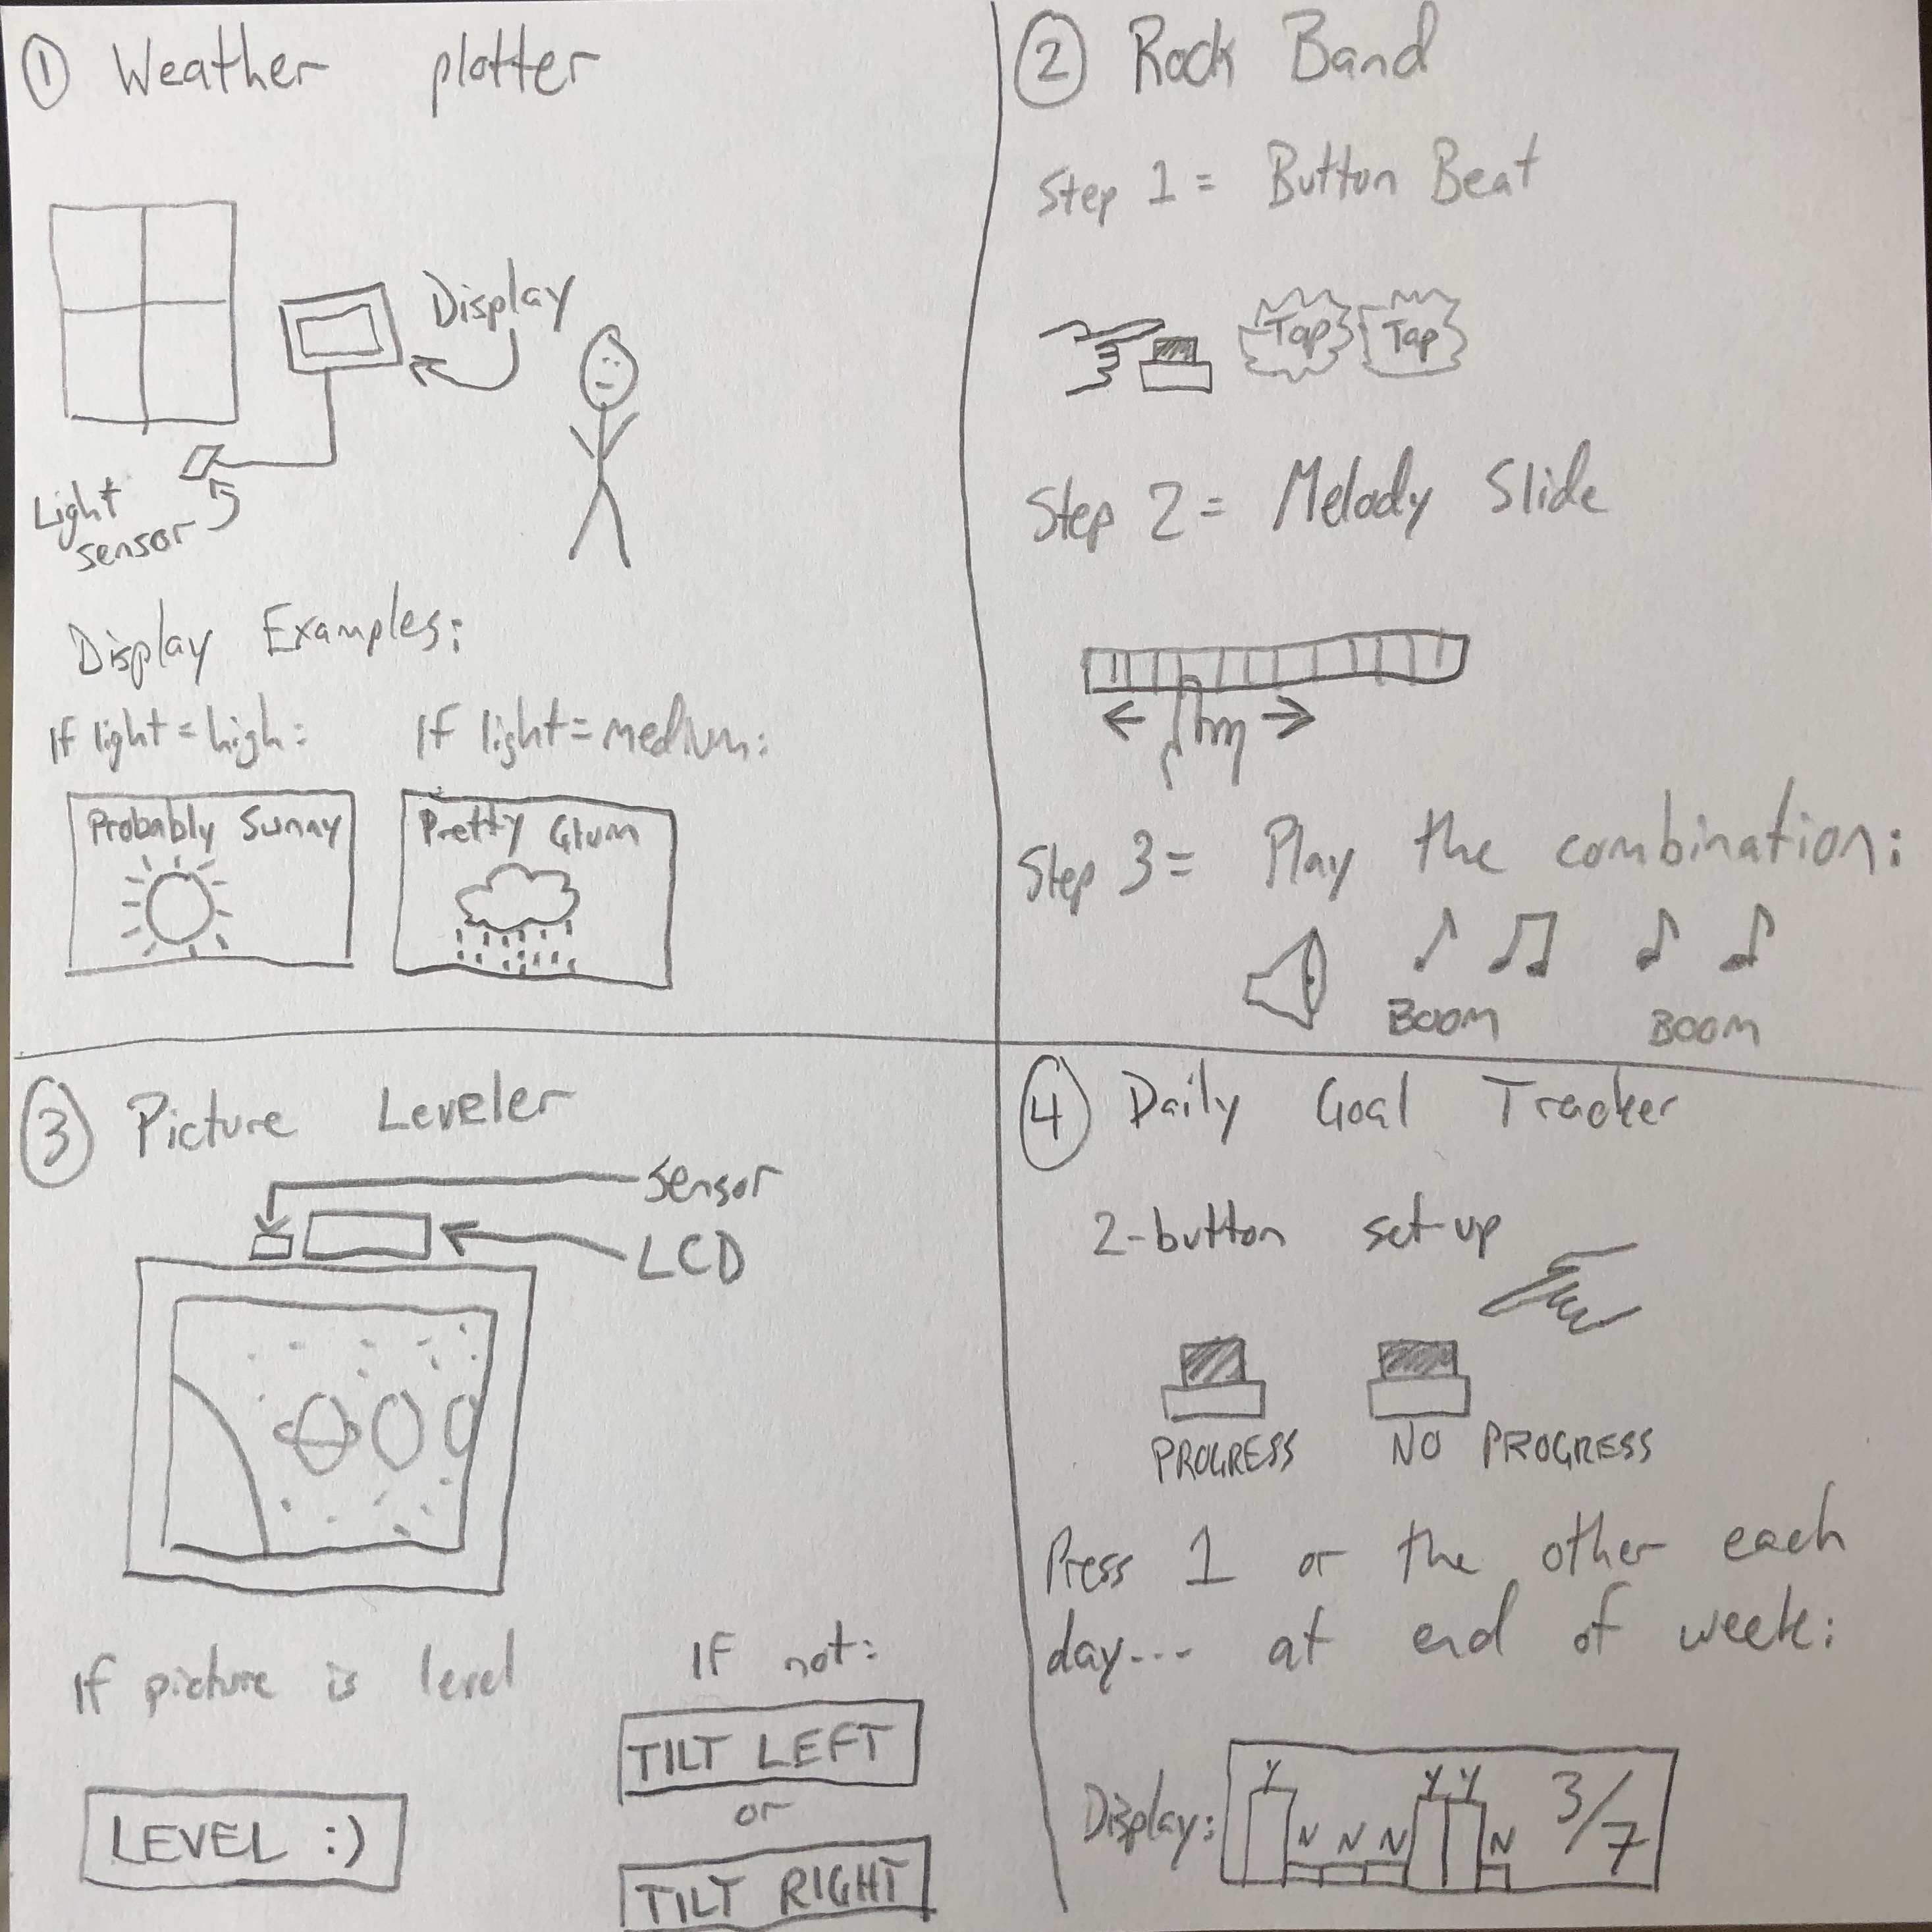 ① Weather plotter
Display
Light
sensor
Display Examples:
If light = high:
If light = medium:
Probably Sunny
Pretty Glum
② Rock Band
Step 1 = Button Beat
Tap Tap
Step 2 = Melody Slide
Step 3 = Play the combination:
BOOM BOOM
③ Picture Leveler
Sensor
LCD
If picture is level
LEVEL :)
If not:
TILT LEFT
or
TILT RIGHT
④ Daily Goal Tracker
2-button set-up
PROGRESS NO PROGRESS
Press 1 or the other each
day... at end of week:
Display:
Y N N N Y Y N 3/7